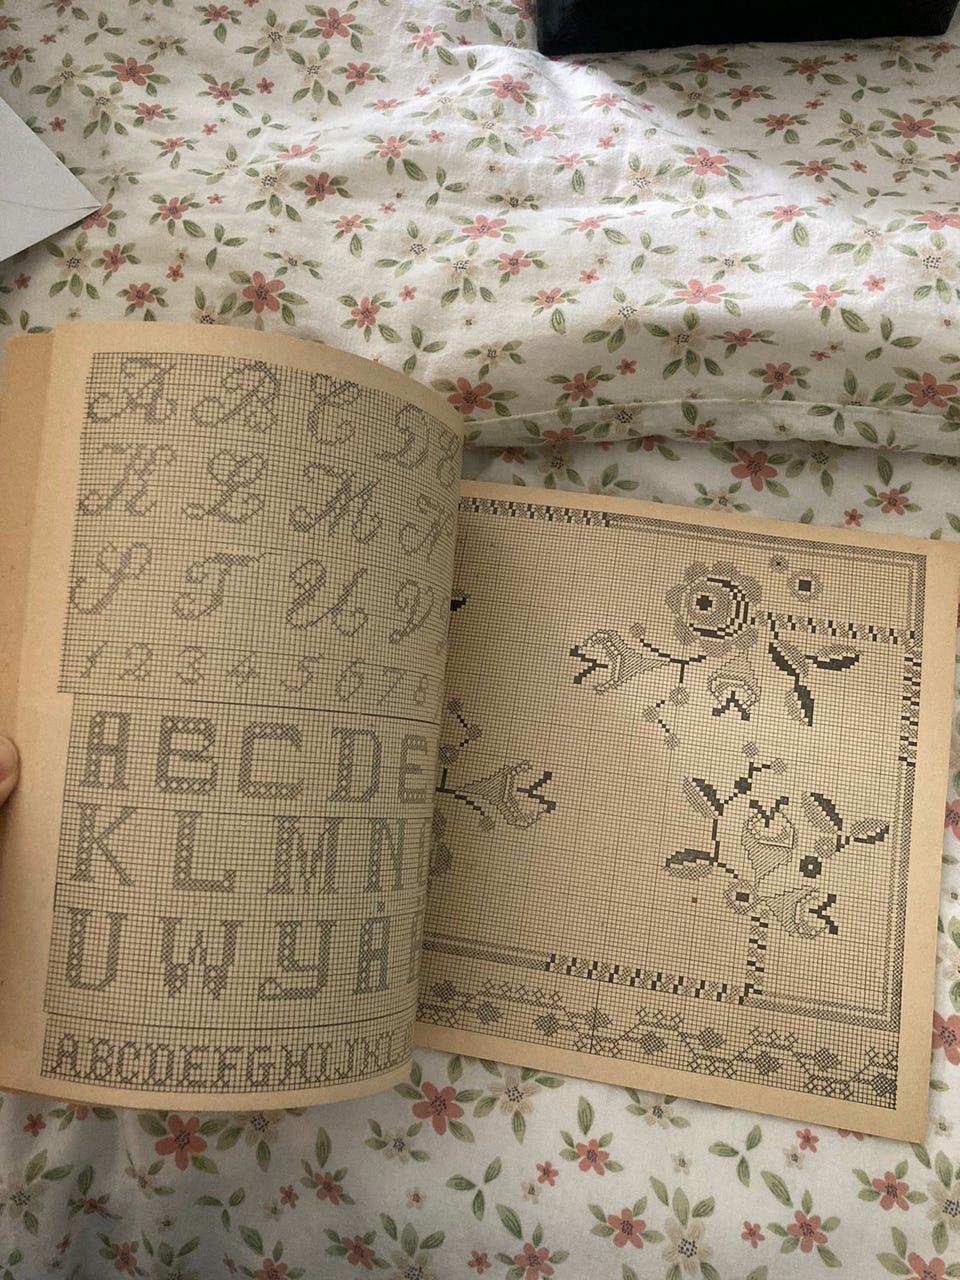 A B C D E
K L M N
S T U V
1 2 3 4 5 6 7 8
A B C D E
K L M N
U W Y
ABCDEFGHIJKL